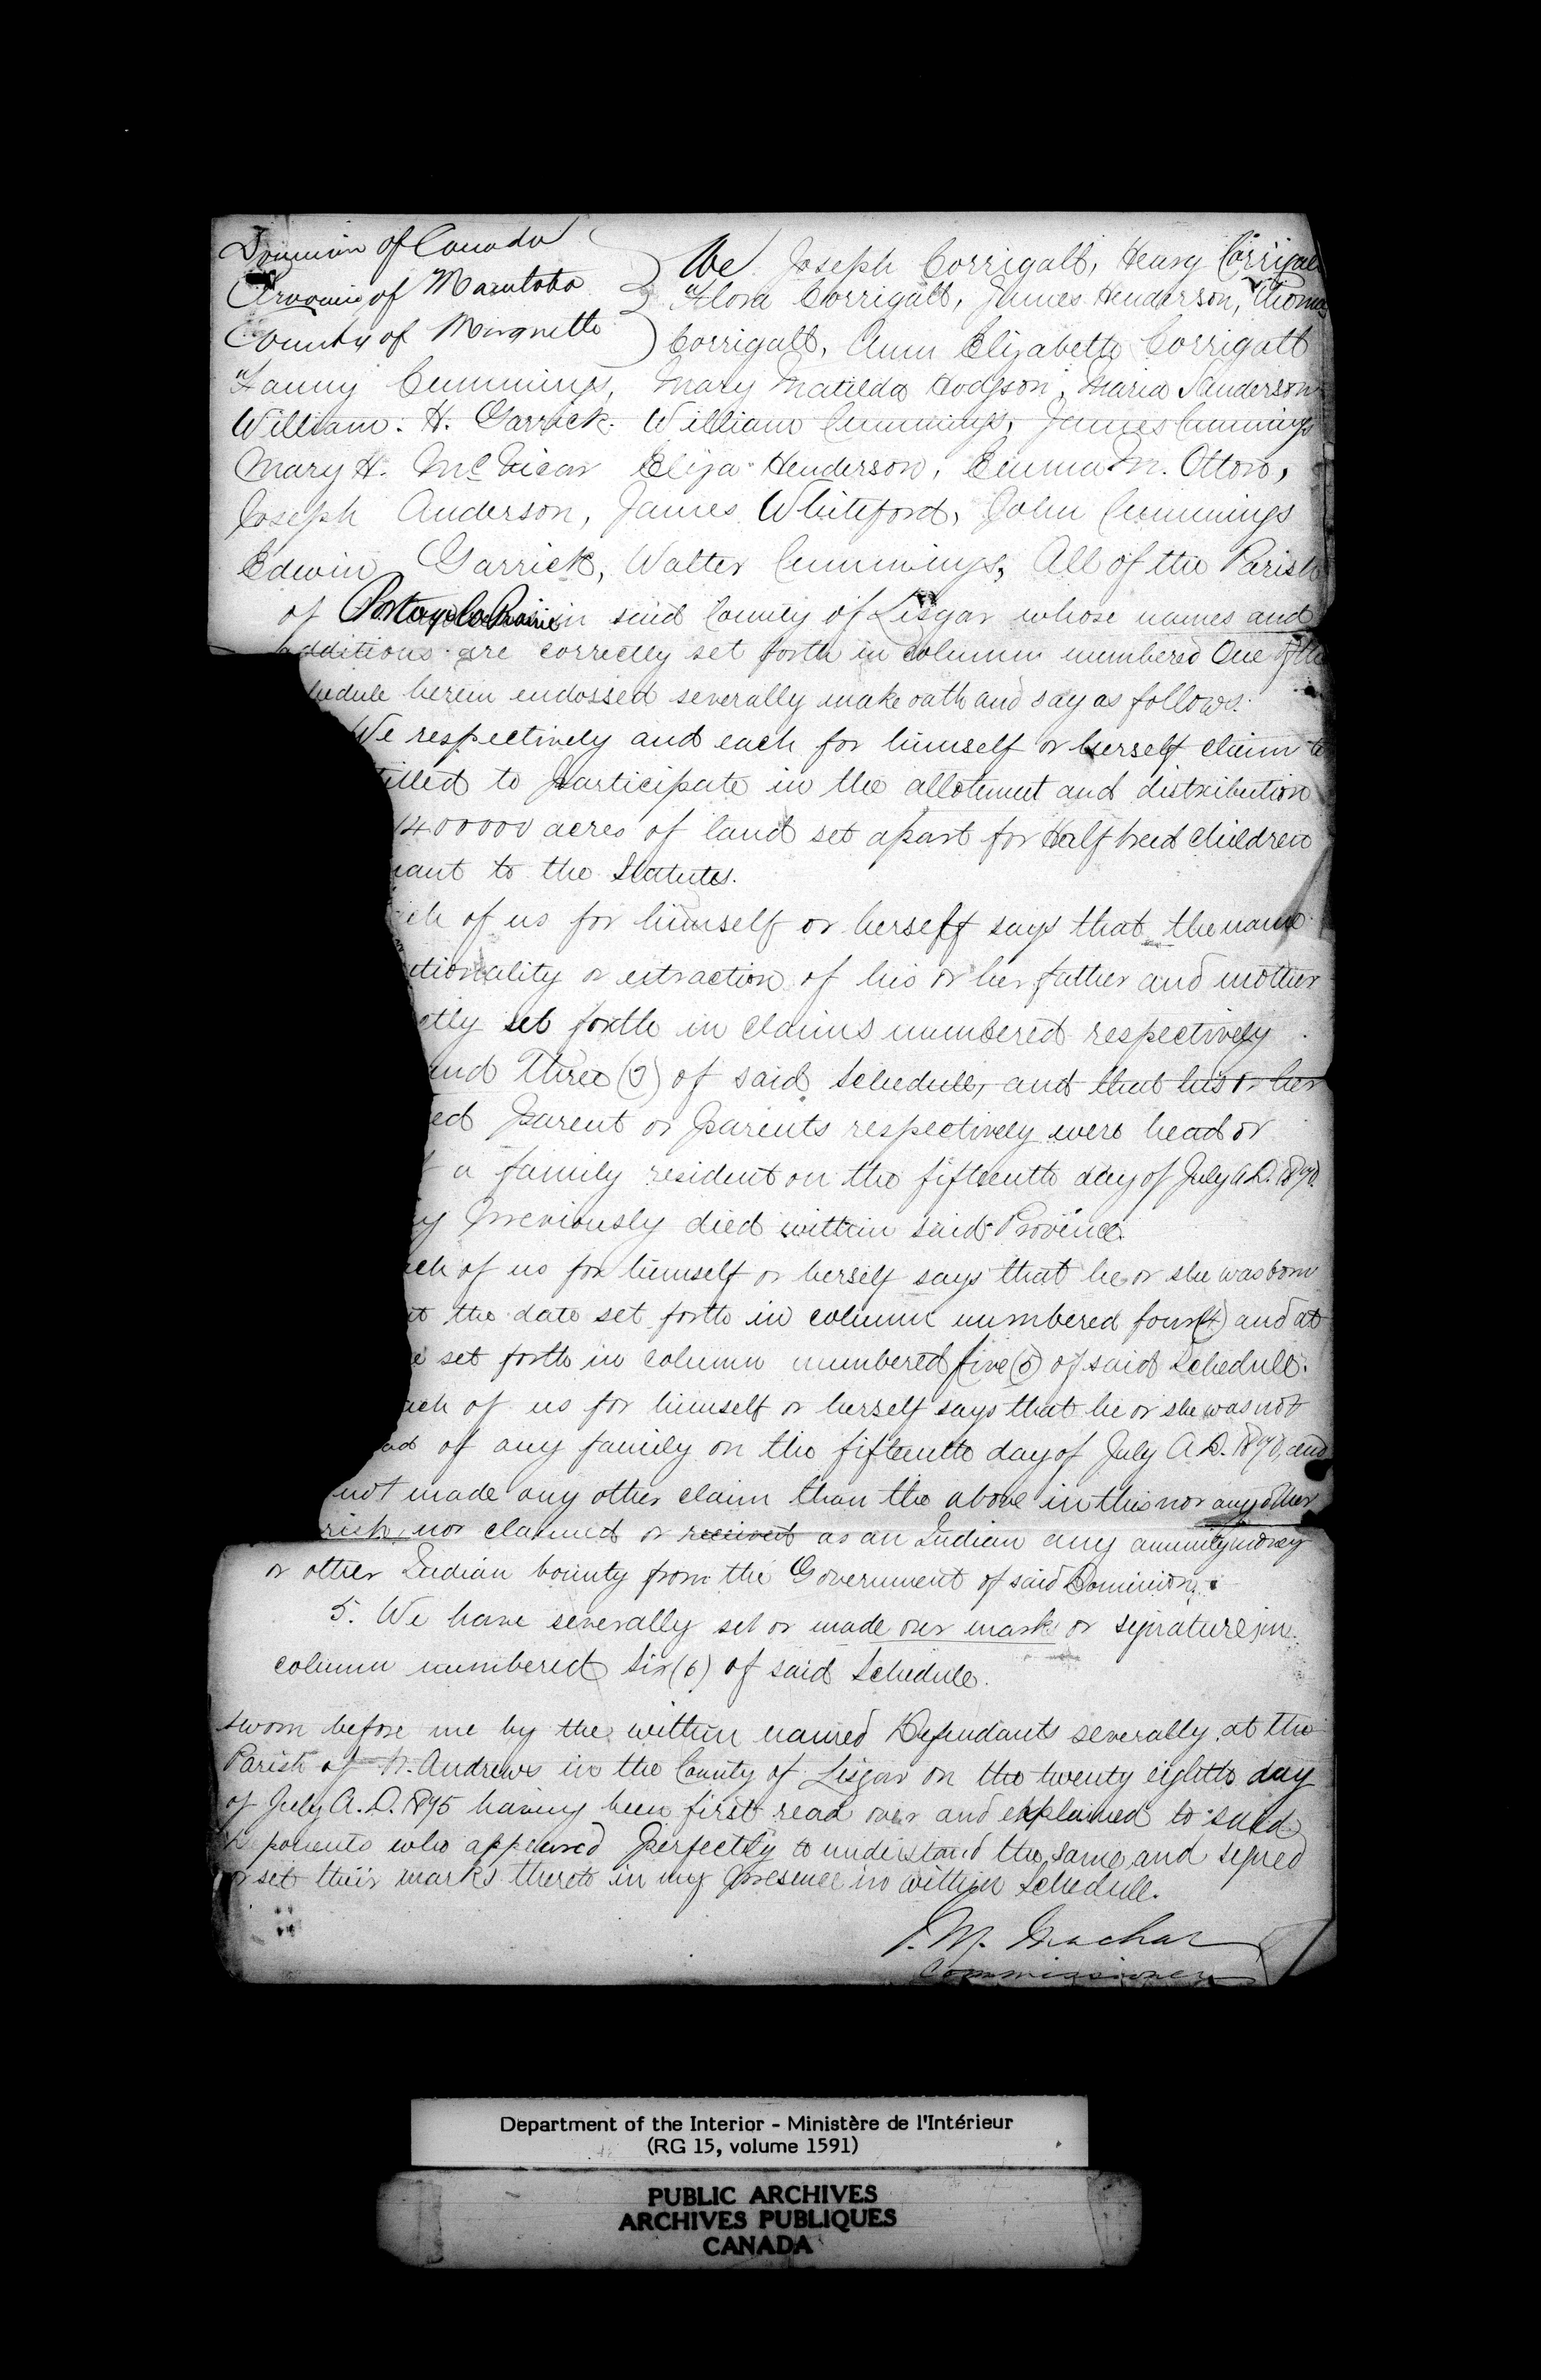 Dominion of Canada
Province of Manitoba
County of Marquette
We Joseph Corrigall, Henry Corrigall
Flora Corrigall, James Henderson, Thomas
Corrigall, Ann Elizabeth Corrigall
Fanny Cummings, Mary Matilda Hodgson, Maria Sanderson
William. H. Garrick. William Cummings, James Cummings
Mary H. McVicar Eliza Henderson, Emma M. Otton,
Joseph Anderson, James Whiteford, John Cummings
Edwin Garrick, Walter Cummings, All of the Parish
of Portage la Prairie in said County of Lisgar whose names and
additions are correctly set forth in Column numbered One of the
hedule herein endossed severally make oath and say as follows.
We respectively and each for himself or herself claim to
titled to participate in the allotement and distribution
1400000 acres of land set apart for Half breed children
uant to the Statutes.
ach of us for himself or herself says that the name
ationality or extraction of his or her father and mother
ctly set forth in claims numbered respectively
and Three (3) of said Schedule, and that his or her
ed Parent or Parents respectively were head or
f a family resident on the fifteenth day of July A.D. 1870.
ly previously died within said Province.
ach of us for himself or herself says that he or she was born
at the date set forth in column numbered four (4) and at
e set forth in column numbered five (5) of said Schedule.
ach of us for himself or herself says that he or she was not
ad of any family on the fifteenth day of July A.D. 1870, and
not made any other claim than the above in this nor any other
rish, nor claimed or received as an Indian any annuity money
or other Indian bounty from the Government of said Dominion.
5. We have severally set or made our marks or signatures in
column numbered Six (6) of said Schedule.
Sworn before me by the within named Defendants severally at the
Parish of St. Andrews in the County of Lisgar on the twenty eighth day
of July A.D. 1875 having been first read over and explained to said
Deponents who appeared perfectly to understand the same and signed
or set their marks thereto in my presence in within Schedule.
J. M. Machar
Commissioner
Department of the Interior - Ministère de l'Intérieur
(RG 15, volume 1591)
PUBLIC ARCHIVES
ARCHIVES PUBLIQUES
CANADA